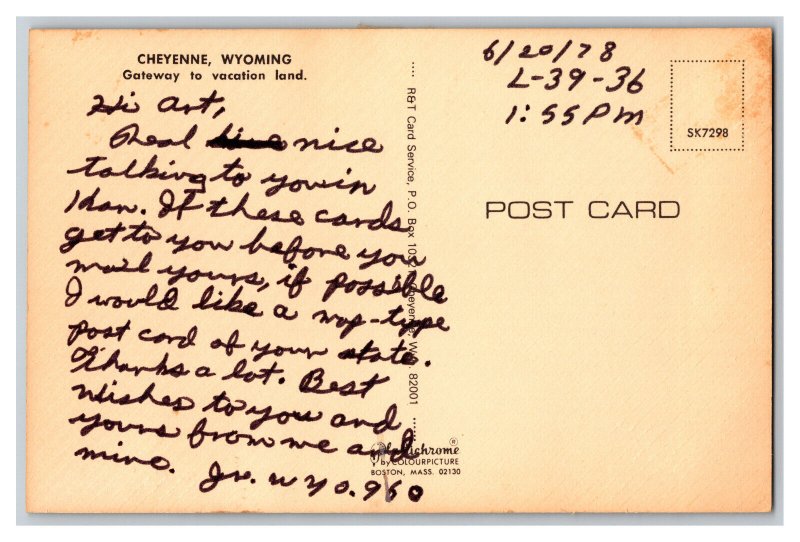 CHEYENNE, WYOMING
Gateway to vacation land.
Hi Art,
Real nice
talking to you in
Kan. If these cards
get to you before you
mail yours, if possible
I would like a map-type
post card of your state.
Thanks a lot. Best
Wishes to you and
yours from me and
mine. Jr. Wyo. 960
R&T Card Service, P.O. Box Cheyenne, Wyo. 82001
6/20/78
L-39-36
1:55 PM
SK7298
POST CARD
Plastichrome ®
by COLOURPICTURE
BOSTON, MASS. 02130